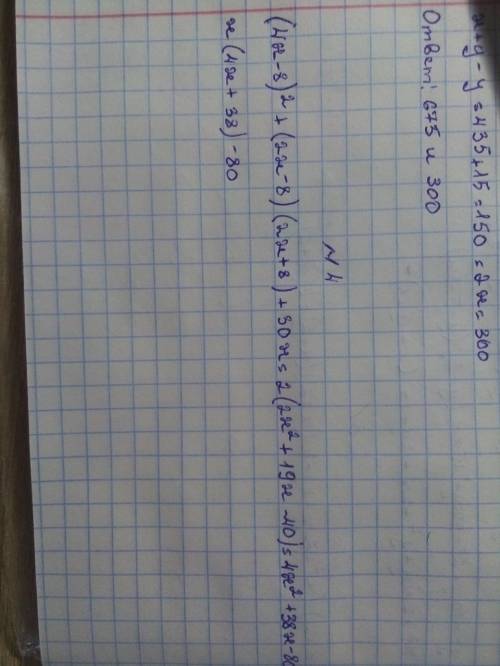 x+y-y=435+15=150=2x=300
Ответ: 675 и 300
№4
(4x-8)²+(2x-8)(2x+8)+30x=2(2x²+19x-40)=4x²+38x-80
x(4x+38)-80